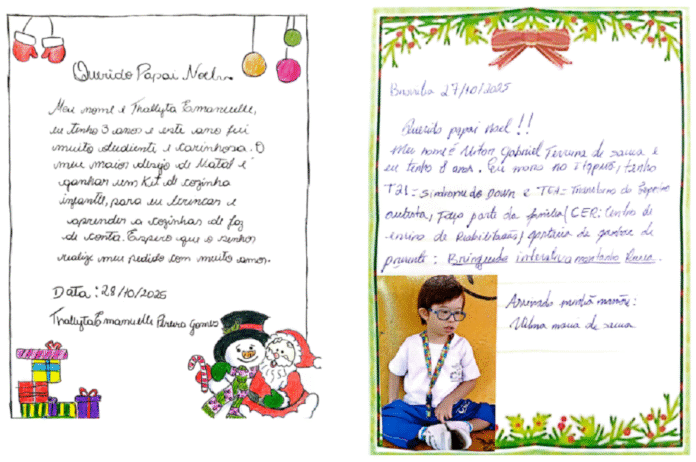 Querido Papai Noel
Meu nome é Thallyta Emanuelle,
eu tenho 3 anos e este ano fui
muito obediente e carinhosa. O
meu maior desejo de Natal é
ganhar um Kit de cozinha
infantil, para eu brincar e
aprender a cozinhar de faz
de conta. Espero que o senhor
realize meu pedido com muito amor.
Data: 28/10/2025
Thallyta Emanuelle Pereira Gomes
Brasília 27/10/2025
Querido papai noel!!
Meu nome é Gabriel de sousa e
eu tenho 8 anos. Eu moro no tenho
T21 = síndrome do Down e TEA = Transtorno do Espectro
autista, faço parte da família (CER: Centro de
ensino de Reabilitação) gostaria de ganhar de
presente: Brinquedo interativo montanha Russa.
Assinado minhã mamãe:
Vilma maria de sousa